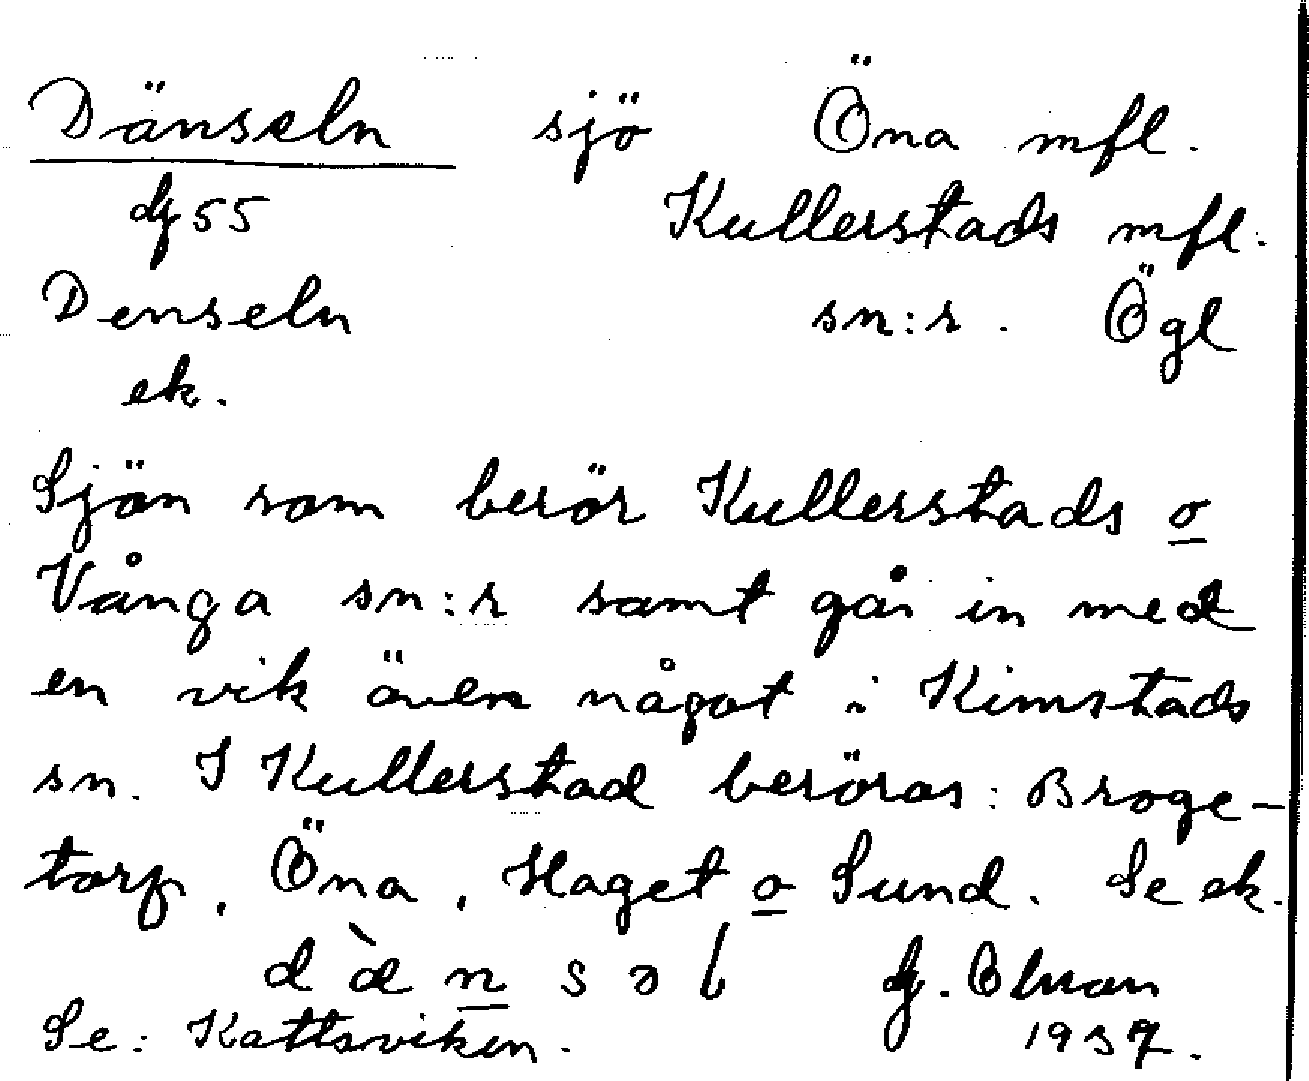 Dänseln sjö Öna mfl.
dj 55 Kullerstads mfl.
Denseln sn:r. Ögl
ek.
Sjön som berör Kullerstads o
Vånga sn:r samt går in med
en vik även något i Kimstads
sn. I Kullerstad beröras: Broge-
torp, Öna, Haget o Sund. Se ek.
d æ̀ n s ə l dj. Ohman
Se: Kattsviken. 1937.